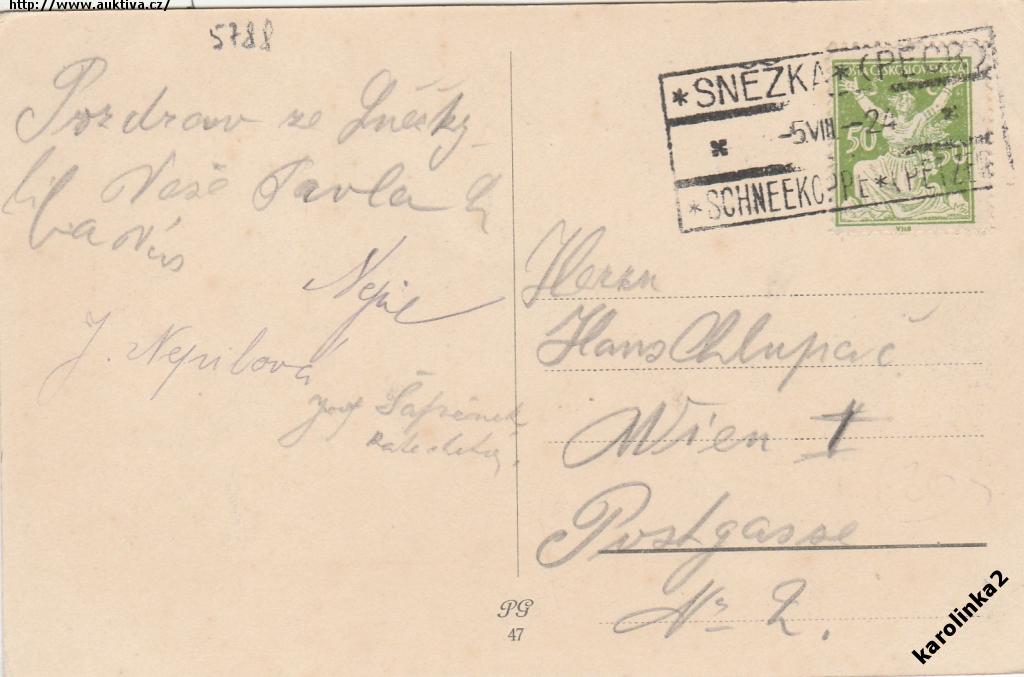 http://www.auktiva.cz/
5788
Pozdrav ze Sněžky
Vaše Pavla
Nepil
J. Nepilová
Josef
*SNĚŽKA*(PEC P.
-5.VIII.-24
*SCHNEEKOPPE*(PETZER
POŠTA ČESKOSLOVENSKÁ
50 50
Herrn
Hans Chlupáč
Wien I
Postgasse
Nr 2.
PG
47
karolinka2